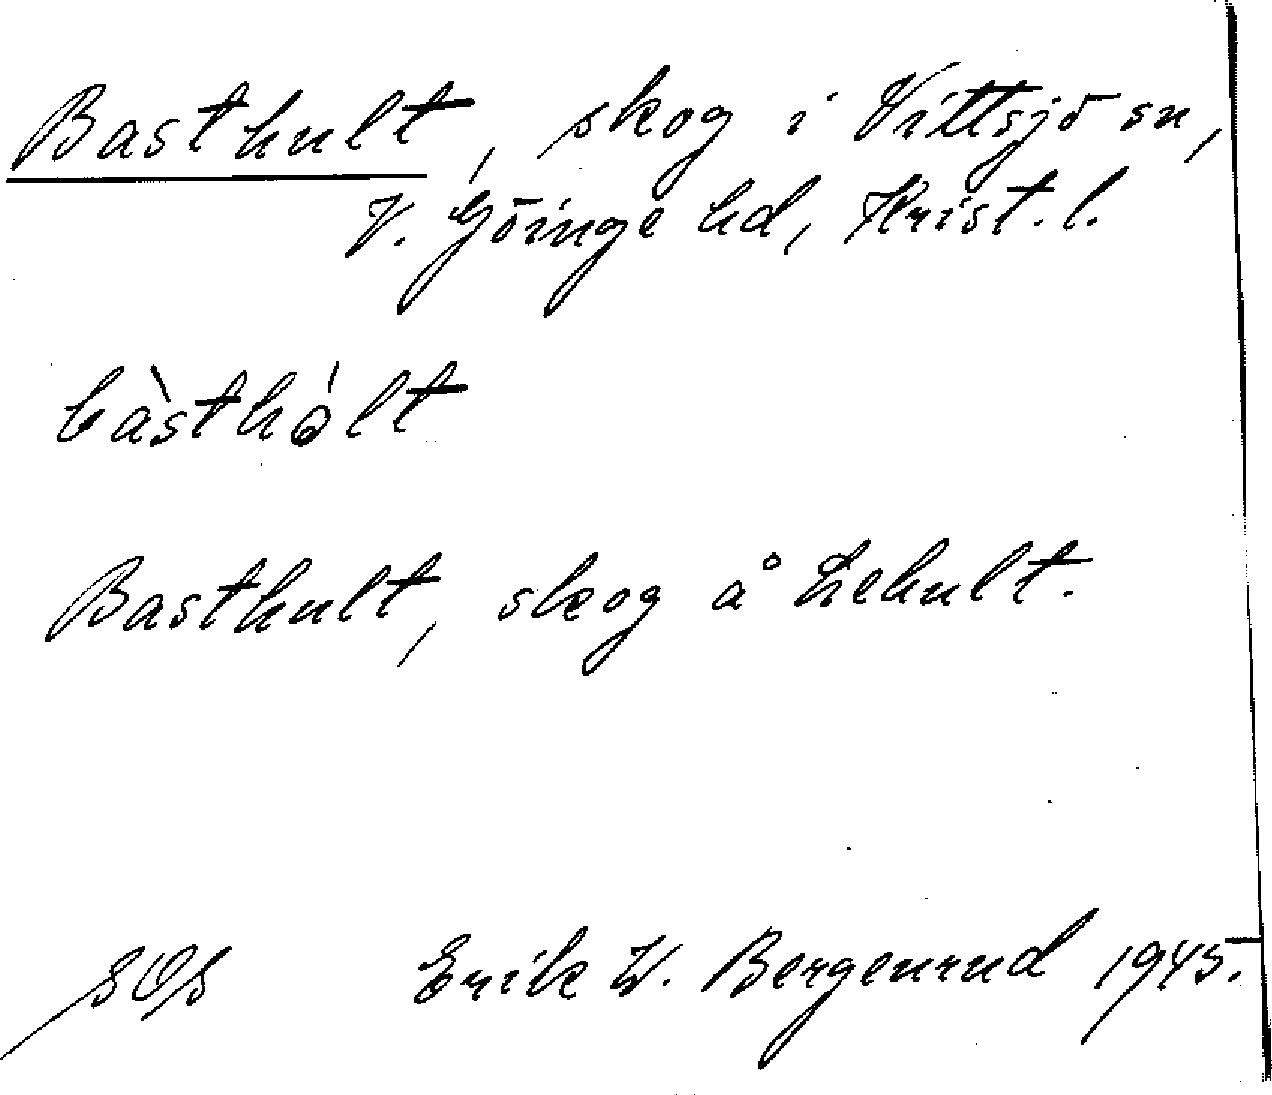 Basthult, skog i Vittsjö sn,
V. Göinge hd, Krist. l.
bàsthólt
Basthult, skog å Lehult.
SOS Erik W. Bergenrud 1945.